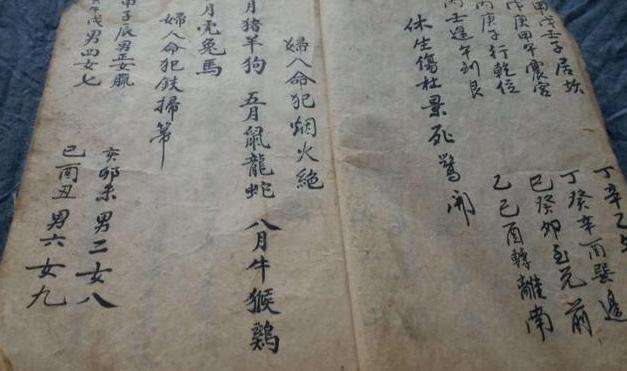 甲戊壬子居坎
庚甲午震宮
丙庚子行乾位
壬逢午到艮
丁辛乙
丁癸辛酉巽邊
巳癸卯至兌前
乙己酉轉離南
休生傷杜景死驚開
婦人命犯烟火絶
月猪羊狗 五月鼠龍蛇 八月牛猴鷄
月虎兔馬
婦人命犯鉄掃箒
子辰男正女臘
亥卯未男二女八
戌男四女七
巳酉丑男六女九